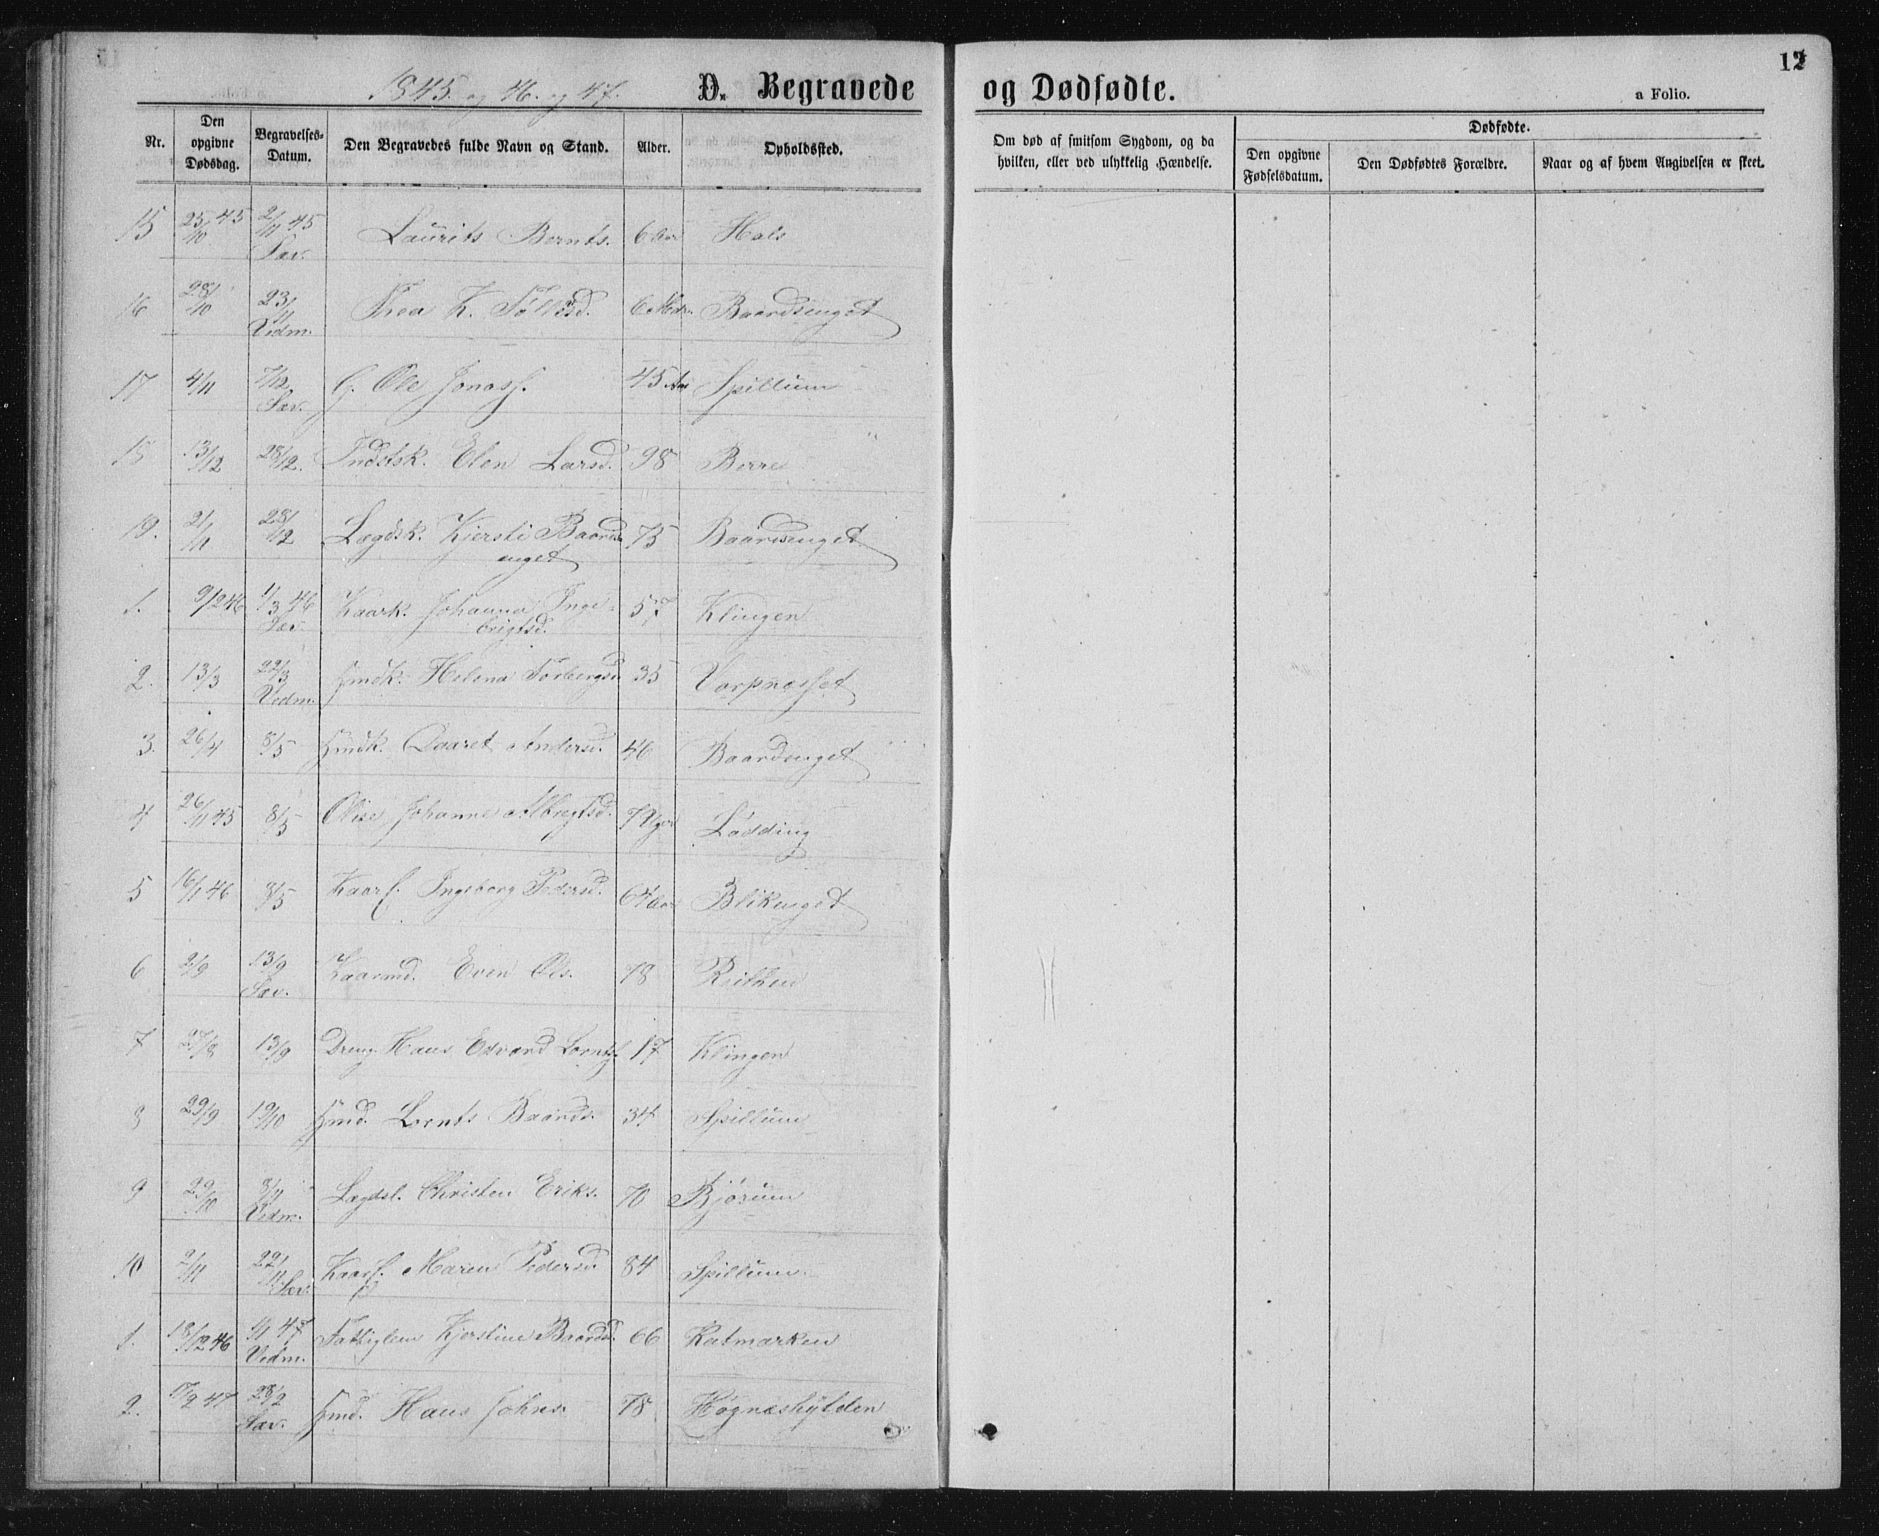 1845 og 46. og 47. D. Begravede og Dødfødte. 12
a Folio.
Nr. Den opgivne Dødsdag. Begravelses-Datum. Den Begravedes fulde Navn og Stand. Alder. Opholdssted. Om død af smitsom Sygdom, og da hvilken, eller ved ulykkelig Hændelse. Dødfødte.
Den opgivne Fødselsdatum. Den Dødfødtes Forældre. Naar og af hvem Angivelsen er skeet.
15 25/10 45 2/11 45 Sæv. Laurits Bernts. 6 Aar Hals
16 28/10 23/11 Vidm. Thea K. 6 Mdr. Baardsenget
17 4/11 7/12 Sæv. G. Ole Jonass. 45 Aar Spillum
13/12 28/12. Indstsk. Elen Larsd. 98 Berre
19. 2/11 28/12 Lægdsk. Kjersti Baards- 75 Baardsenget
enget
1. 9/2 46 1/3 46 Sæv. Kaark. Johanna Inge- 57 Klingen
brigtsd.
2. 13/3 22/3 Vidm. Hmdk. Helena Torbergsd. 35 Varpnesset
3. 26/4 8/5 Hmdk. Andersd. 46 Baardsenget
4 26/11 45 8/5 Olise Johanna Albregtsd. Lødding
5 16/1 46 8/5 Kaark. Ingeborg Pedersd. 64 Aar Blikenget
6 2/9 13/9 Sæv. Kaarmd. Even Ols. 78
7 27/8 13/9 Dreng Hans Edvard Lorntss. 17 Klingen
8 29/9 19/10 Hmd. Lornts Baards. 34 Spillum
9 29/10 8/11 Vidm. Lægdsl. Christen Eriks. 70 Bjørum
10 2/11 22/11 Sæv. Kaark. Maren Pedersd. 84 Spillum.
1. 18/12 46 1/1 47 Vedm. Fattiglem Kjerstine Baardsd. 66 Ratmarken
2. 17/2 47 28/2 Sæv. Hmd. Hans Johns. 78 Høgneshylden